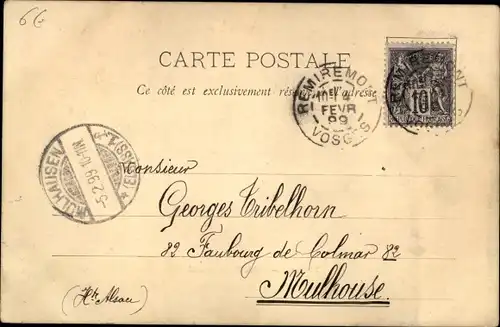 66
CARTE POSTALE
Ce côté est exclusivement réservé à l'adresse
REMIREMONT
4
FEVR
99
VOSGES
10
MÜLHAUSEN (ELSASS) 1
5.2.99.10-11N
Monsieur
Georges Tribelhorn
82 Faubourg de Colmar 82
Mulhouse.
(Hte Alsace)